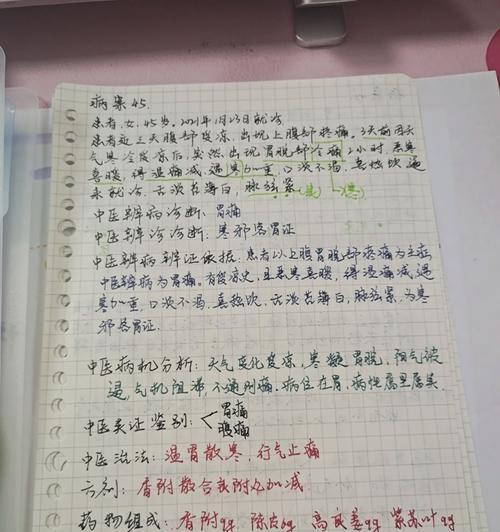 病案45.
患者,女,45岁。2021年1月23日就诊
患者近三天腹部受冻,出现上腹部疼痛。3天前因天
气具冷受冻后,突然出现胃脘部冷痛2小时,恶寒
喜暖,得温痛减,遇寒加重,口淡不渴,喜热饮,遂
来就诊。舌淡苔薄白,脉弦紧(实)(寒)
中医辨病诊断:胃痛
中医辨证诊断:寒邪客胃证
中医辨病辨证依据:患者以上腹胃脘部疼痛为主症,
中医辨病为胃痛。有受凉史,且恶寒喜暖,得温痛减,遇
寒加重,口淡不渴,喜热饮,舌淡苔薄白,脉弦紧,为寒
邪客胃证.
中医病机分析:天气变化受冻,寒凝胃脘,阳气被
遏,气机阻滞,不通则痛。病位在胃,病性属里属实
中医类证鉴别:胃痛
腹痛
中医治法:温胃散寒,行气止痛
方剂:香附散合良附丸加减.
药物组成:香附9g 陈皮6g 高良姜9g 紫苏叶9g